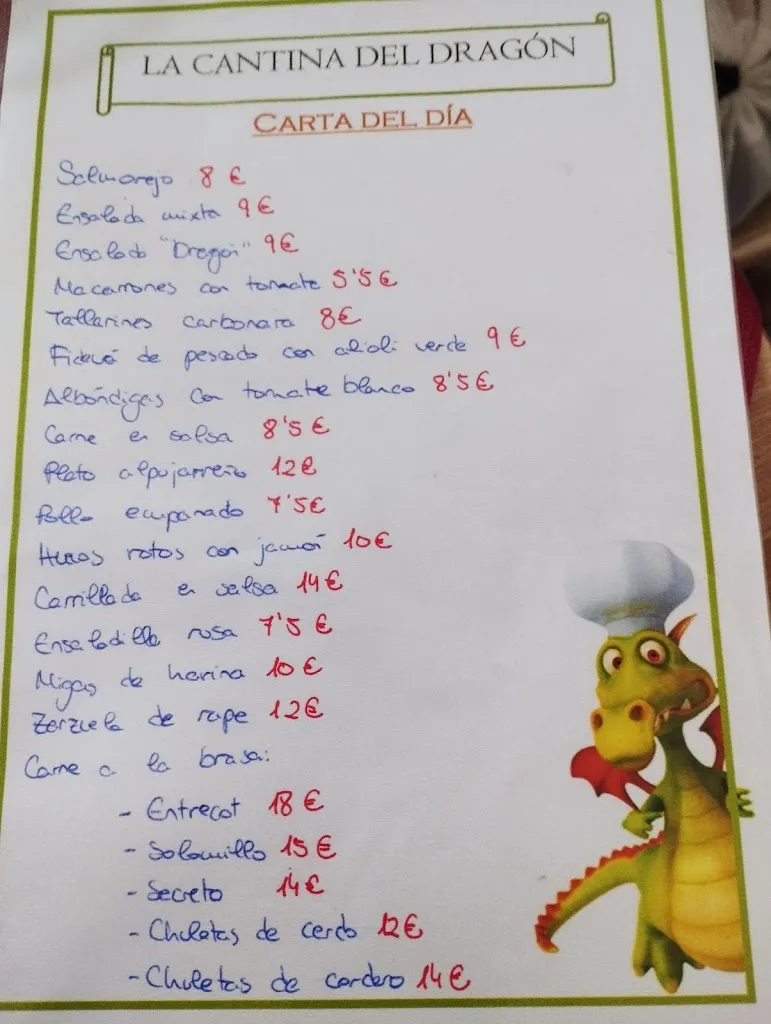 LA CANTINA DEL DRAGÓN
CARTA DEL DÍA
Salmorejo 8 €
Ensalada mixta 9 €
Ensalada "Dragón" 9 €
Macarrones con tomate 5'5 €
Tallarines carbonara 8 €
Fideuá de pescado con alioli verde 9 €
Albóndigas con tomate blanco 8'5 €
Carne en salsa 8'5 €
Plato alpujarreño 12 €
Pollo empanado 7'5 €
Huevos rotos con jamón 10 €
Carrillada en salsa 14 €
Ensaladilla rusa 7'5 €
Migas de harina 10 €
Zarzuela de rape 12 €
Carne a la brasa:
- Entrecot 18 €
- Solomillo 15 €
- Secreto 14 €
- Chuletas de cerdo 12 €
- Chuletas de cordero 14 €